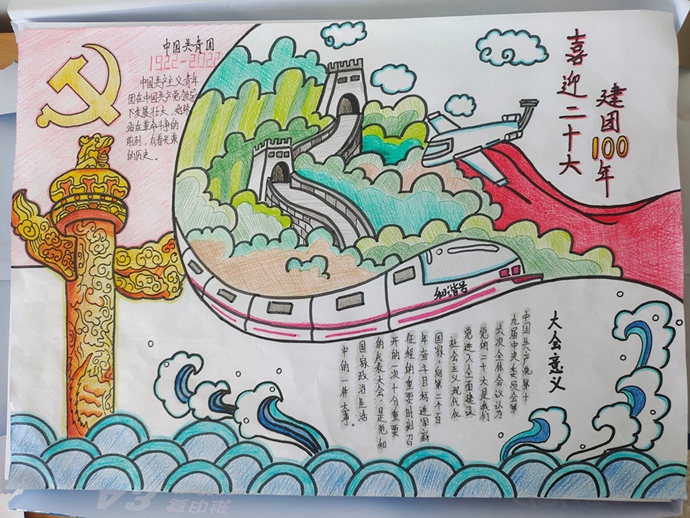 中国共青团
1922-2022
中国共产主义青年
团在中国共产党领导
下发展壮大,始终
站在革命斗争的
前列,有着光荣
的历史。
喜迎二十大
建团100年
和谐号
大会意义
中国共产党第十
九届中央委员会第
六次全体会议认为
党的二十大是我们
党进入全面建设
社会主义现代化
国家,向第二个百
年奋斗目标进军新
征程的重要时刻召
开的一次十分重要
的代表大会,是党和
国家政治生活
中的一件大事
A3
复印纸